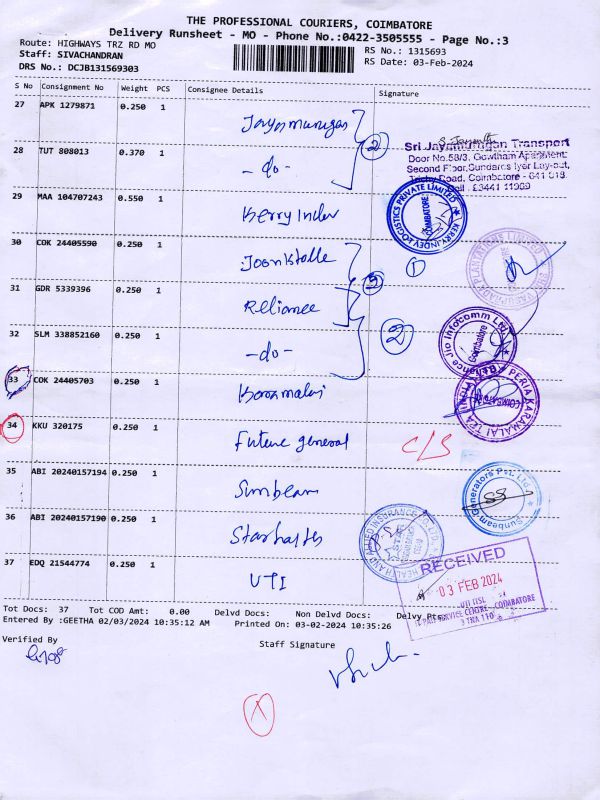 THE PROFESSIONAL COURIERS, COIMBATORE
Delivery Runsheet - MO - Phone No.:0422-3505555 - Page No.:3
Route: HIGHWAYS TRZ RD MO
RS No.: 1315693
Staff: SIVACHANDRAN
RS Date: 03-Feb-2024
DRS No.: DCJB131569303
S No Consignment No Weight PCS Consignee Details Signature
27 APK 1279871 0.250 1
Jayamurugan
2
Sri Jayamurugan Transport
Door No.58/3, Gowtham Apartment
Second Floor, Sundaras Iyer Lay-out,
Trichy Road, Coimbatore - 641 018.
28 TUT 808013 0.370 1
- do -
29 MAA 104707243 0.550 1
Kerry Indev
KERRY INDEV LOGISTICS PRIVATE LIMITED
COIMBATORE
1
30 COK 24405590 0.250 1
31 GDR 5339396 0.250 1
Reliance
32 SLM 338852160 0.250 1
- do -
2
Reliance Jio Infocomm Ltd
Coimbatore
33 COK 24405703 0.250 1
PERIA KARAMALAI TEA
34 KKU 320175 0.250 1
Future general
C/S
35 ABI 20240157194 0.250 1
Sunbeam
Sunbeam Generators Pvt. Ltd.
36 ABI 20240157190 0.250 1
STAR HEALTH AND ALLIED INSURANCE CO. LTD
37 EDQ 21544774 0.250 1
UTI
RECEIVED
03 FEB 2024
COIMBATORE
Tot Docs: 37 Tot COD Amt: 0.00 Delvd Docs: Non Delvd Docs: Delvy Prs
Entered By :GEETHA 02/03/2024 10:35:12 AM Printed On: 03-02-2024 10:35:26
Verified By
Staff Signature